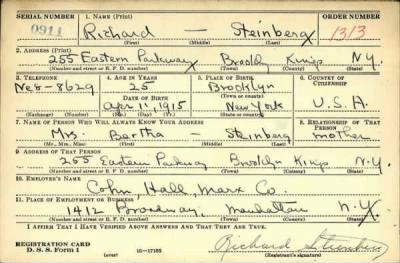 SERIAL NUMBER 1. NAME (Print) ORDER NUMBER
0911 Richard — Steinberg 1313
(First) (Middle) (Last)
2. ADDRESS (Print)
255 Eastern Parkway Brooklyn Kings N.Y.
(Number and street or R. F. D. number) (Town) (County) (State)
3. TELEPHONE 4. AGE IN YEARS 5. PLACE OF BIRTH 6. COUNTRY OF CITIZENSHIP
Ne8-8629 25 Brooklyn
DATE OF BIRTH (Town or county)
Apr 11 1915 New York U.S.A.
(Exchange) (Number) (Mo.) (Day) (Yr.) (State or country)
7. NAME OF PERSON WHO WILL ALWAYS KNOW YOUR ADDRESS 8. RELATIONSHIP OF THAT PERSON
Mrs. Bertha — Steinberg mother
(Mr., Mrs., Miss) (First) (Middle) (Last)
9. ADDRESS OF THAT PERSON
255 Eastern Parkway Brooklyn Kings N.Y.
(Number and street or R. F. D. number) (Town) (County) (State)
10. EMPLOYER'S NAME
Cohn Hall Marx Co.
11. PLACE OF EMPLOYMENT OR BUSINESS
1412 Broadway, Manhattan N.Y.
(Number and street or R. F. D. number) (Town) (County) (State)
I AFFIRM THAT I HAVE VERIFIED ABOVE ANSWERS AND THAT THEY ARE TRUE.
REGISTRATION CARD
D. S. S. Form 1 (over) 16-17105 Richard Steinberg
(Registrant's signature)